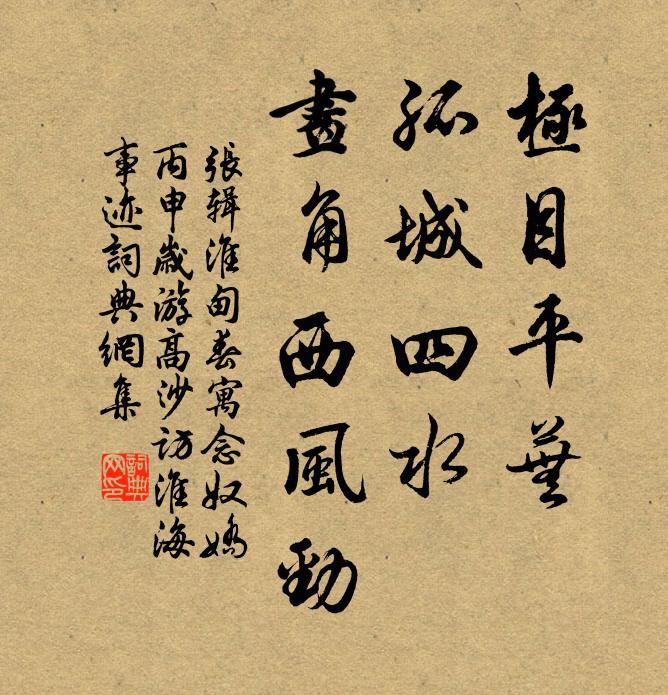 極目平蕪
孤城四水
畫角西風勁
張輯淮甸春寓念奴嬌
丙申歲游高沙訪淮海
事迹詞典網集
詞典
网印